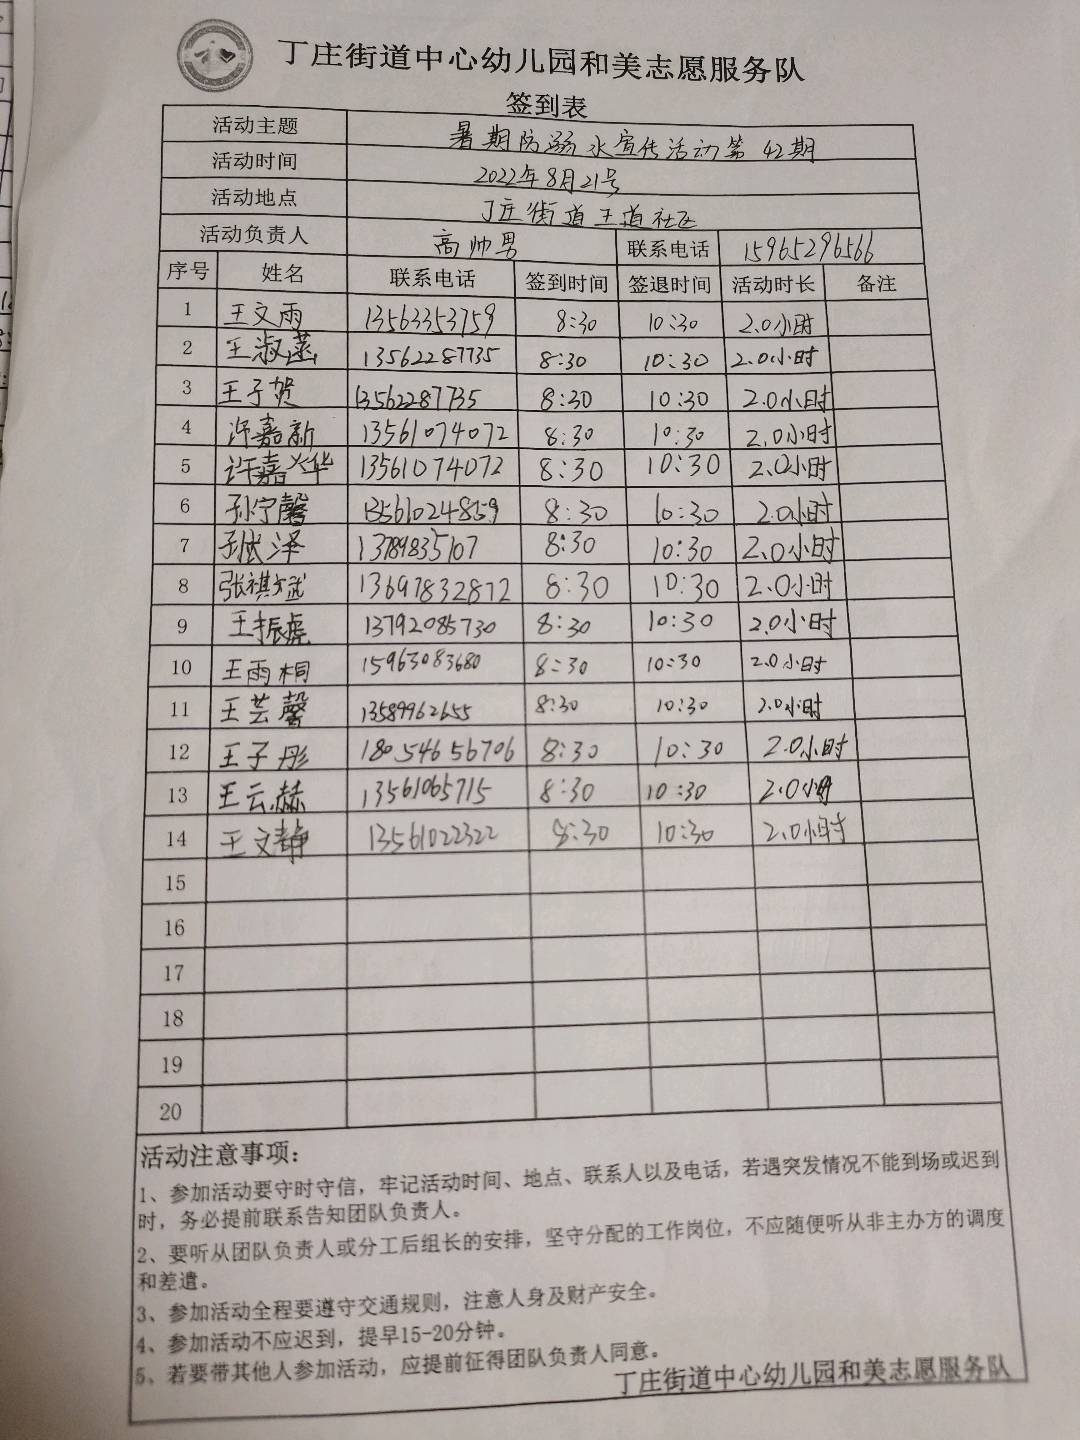 丁庄街道中心幼儿园和美志愿服务队
签到表
活动主题 暑期防溺水宣传活动第42期
活动时间 2022年8月21号
活动地点 丁庄街道王道社区
活动负责人 高帅男 联系电话 15965296566
序号 姓名 联系电话 签到时间 签退时间 活动时长 备注
1 王文雨 13563353759 8:30 10:30 2.0小时
2 王淑涵 13562287735 8:30 10:30 2.0小时
3 王子贺 13562287735 8:30 10:30 2.0小时
4 许嘉新 13561074072 8:30 10:30 2.0小时
5 许嘉兴华 13561074072 8:30 10:30 2.0小时
6 孙宁馨 13561024859 8:30 10:30 2.0小时
7 13789835107 8:30 10:30 2.0小时
8 张祺斌 13697832872 8:30 10:30 2.0小时
9 王振虎 13792085730 8:30 10:30 2.0小时
10 王雨桐 15963083680 8:30 10:30 2.0小时
11 王芸馨 13589962655 8:30 10:30 2.0小时
12 王子彤 18054656706 8:30 10:30 2.0小时
13 王云赫 13561065715 8:30 10:30 2.0小时
14 王文静 13561022322 8:30 10:30 2.0小时
15
16
17
18
19
20
活动注意事项：
1、参加活动要守时守信，牢记活动时间、地点、联系人以及电话，若遇突发情况不能到场或迟到
时，务必提前联系告知团队负责人。
2、要听从团队负责人或分工后组长的安排，坚守分配的工作岗位，不应随便听从非主办方的调度
和差遣。
3、参加活动全程要遵守交通规则，注意人身及财产安全。
4、参加活动不应迟到，提早15-20分钟。
5、若要带其他人参加活动，应提前征得团队负责人同意。
丁庄街道中心幼儿园和美志愿服务队